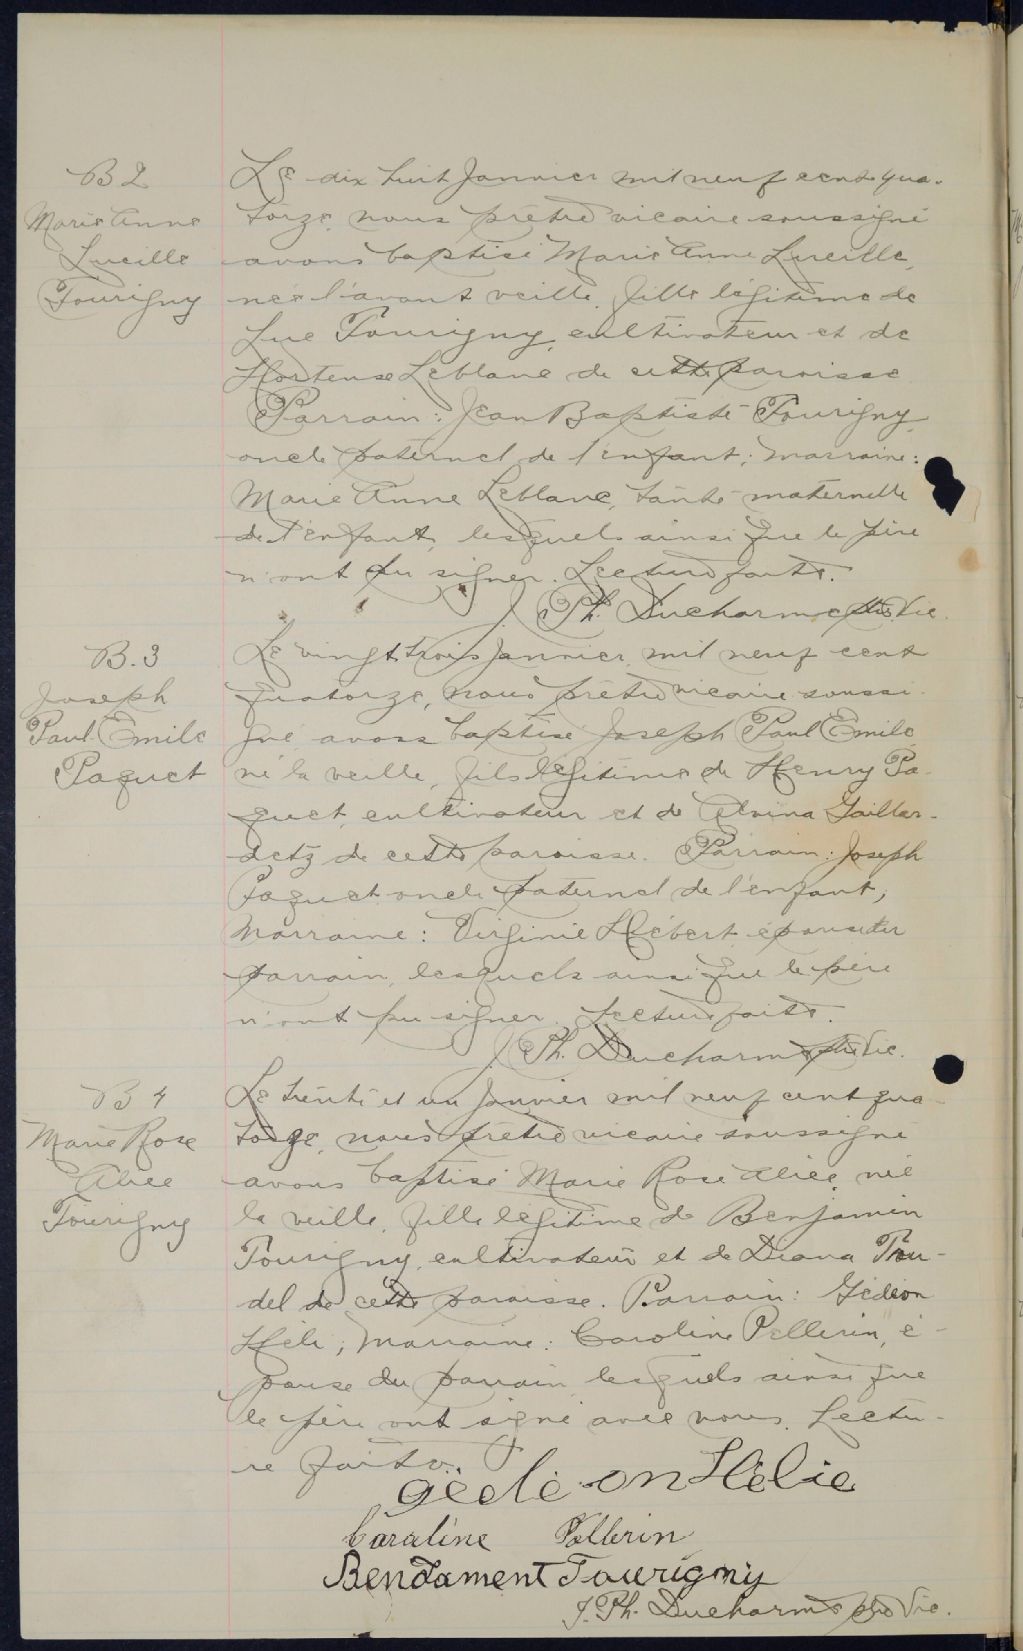 B 2
Marie Anne
Lucille
Tourigny
Le dix huit Janvier mil neuf cent qua-
torze, nous prêtre vicaire soussigné
avons baptisé Marie Anne Lucille,
née l'avant veille, fille légitime de
Luc Tourigny, cultivateur et de
Hortense Leblanc de cette paroisse
Parrain: Jean Baptiste Tourigny,
oncle paternel de l'enfant; marraine:
Marie Anne Leblanc, tante maternelle
de l'enfant, lesquels ainsi que le père
n'ont pu signer. Lecture faite.
J. Ph. Ducharme ptre Vic.
B. 3
Joseph
Paul Emile
Paquet
Le vingt trois Janvier mil neuf cent
quatorze, nous prêtre vicaire soussi-
gné avons baptisé Joseph Paul Emile,
né la veille, fils légitime de Henry Pa-
quet, cultivateur et de Alvina Gaillar-
detz de cette paroisse. Parrain: Joseph
Paquet oncle paternel de l'enfant;
Marraine: Virginie Hébert épouse du
parrain, lesquels ainsi que le père
n'ont pu signer. Lecture faite.
J. Ph. Ducharme ptre Vic.
B 4
Marie Rose
Alice
Tourigny
Le trente et un Janvier mil neuf cent qua-
torze, nous prêtre vicaire soussigné
avons baptisé Marie Rose Alice, née
la veille, fille légitime de Benjamin
Tourigny, cultivateur et de Diana Tru-
del de cette paroisse. Parrain: Gédéon
Hélie; Marraine: Caroline Pellerin, é-
pouse du parrain lesquels ainsi que
le père ont signé avec nous. Lectu-
re faite.
Gédé on Hélie
Caraline Pellerin
Bendament Tourigny
J. Ph. Ducharme ptre Vic.